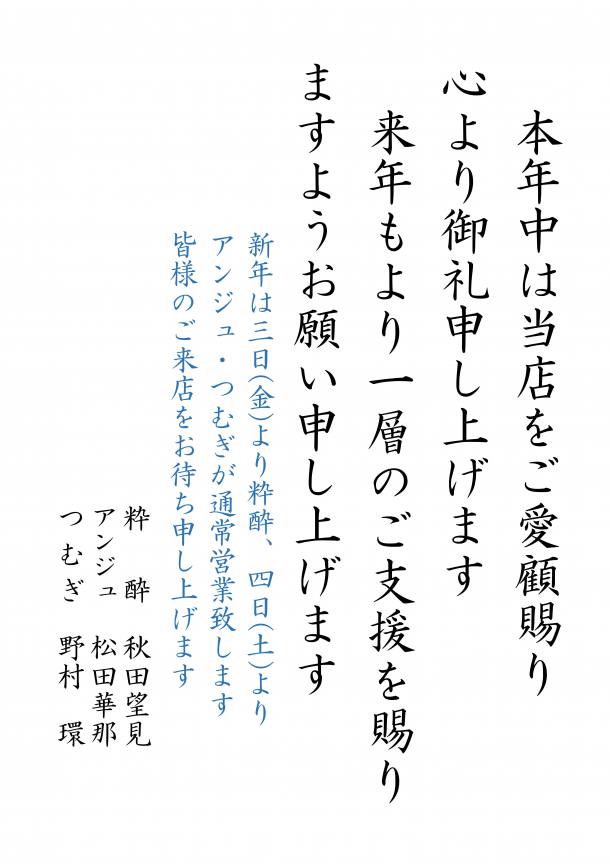 本年中は当店をご愛顧賜り
心より御礼申し上げます
来年もより一層のご支援を賜り
ますようお願い申し上げます
新年は三日(金)より粋酔、四日(土)より
アンジュ・つむぎが通常営業致します
皆様のご来店をお待ち申し上げます
粋　酔　秋田望見
アンジュ　松田華那
つむぎ　野村　環